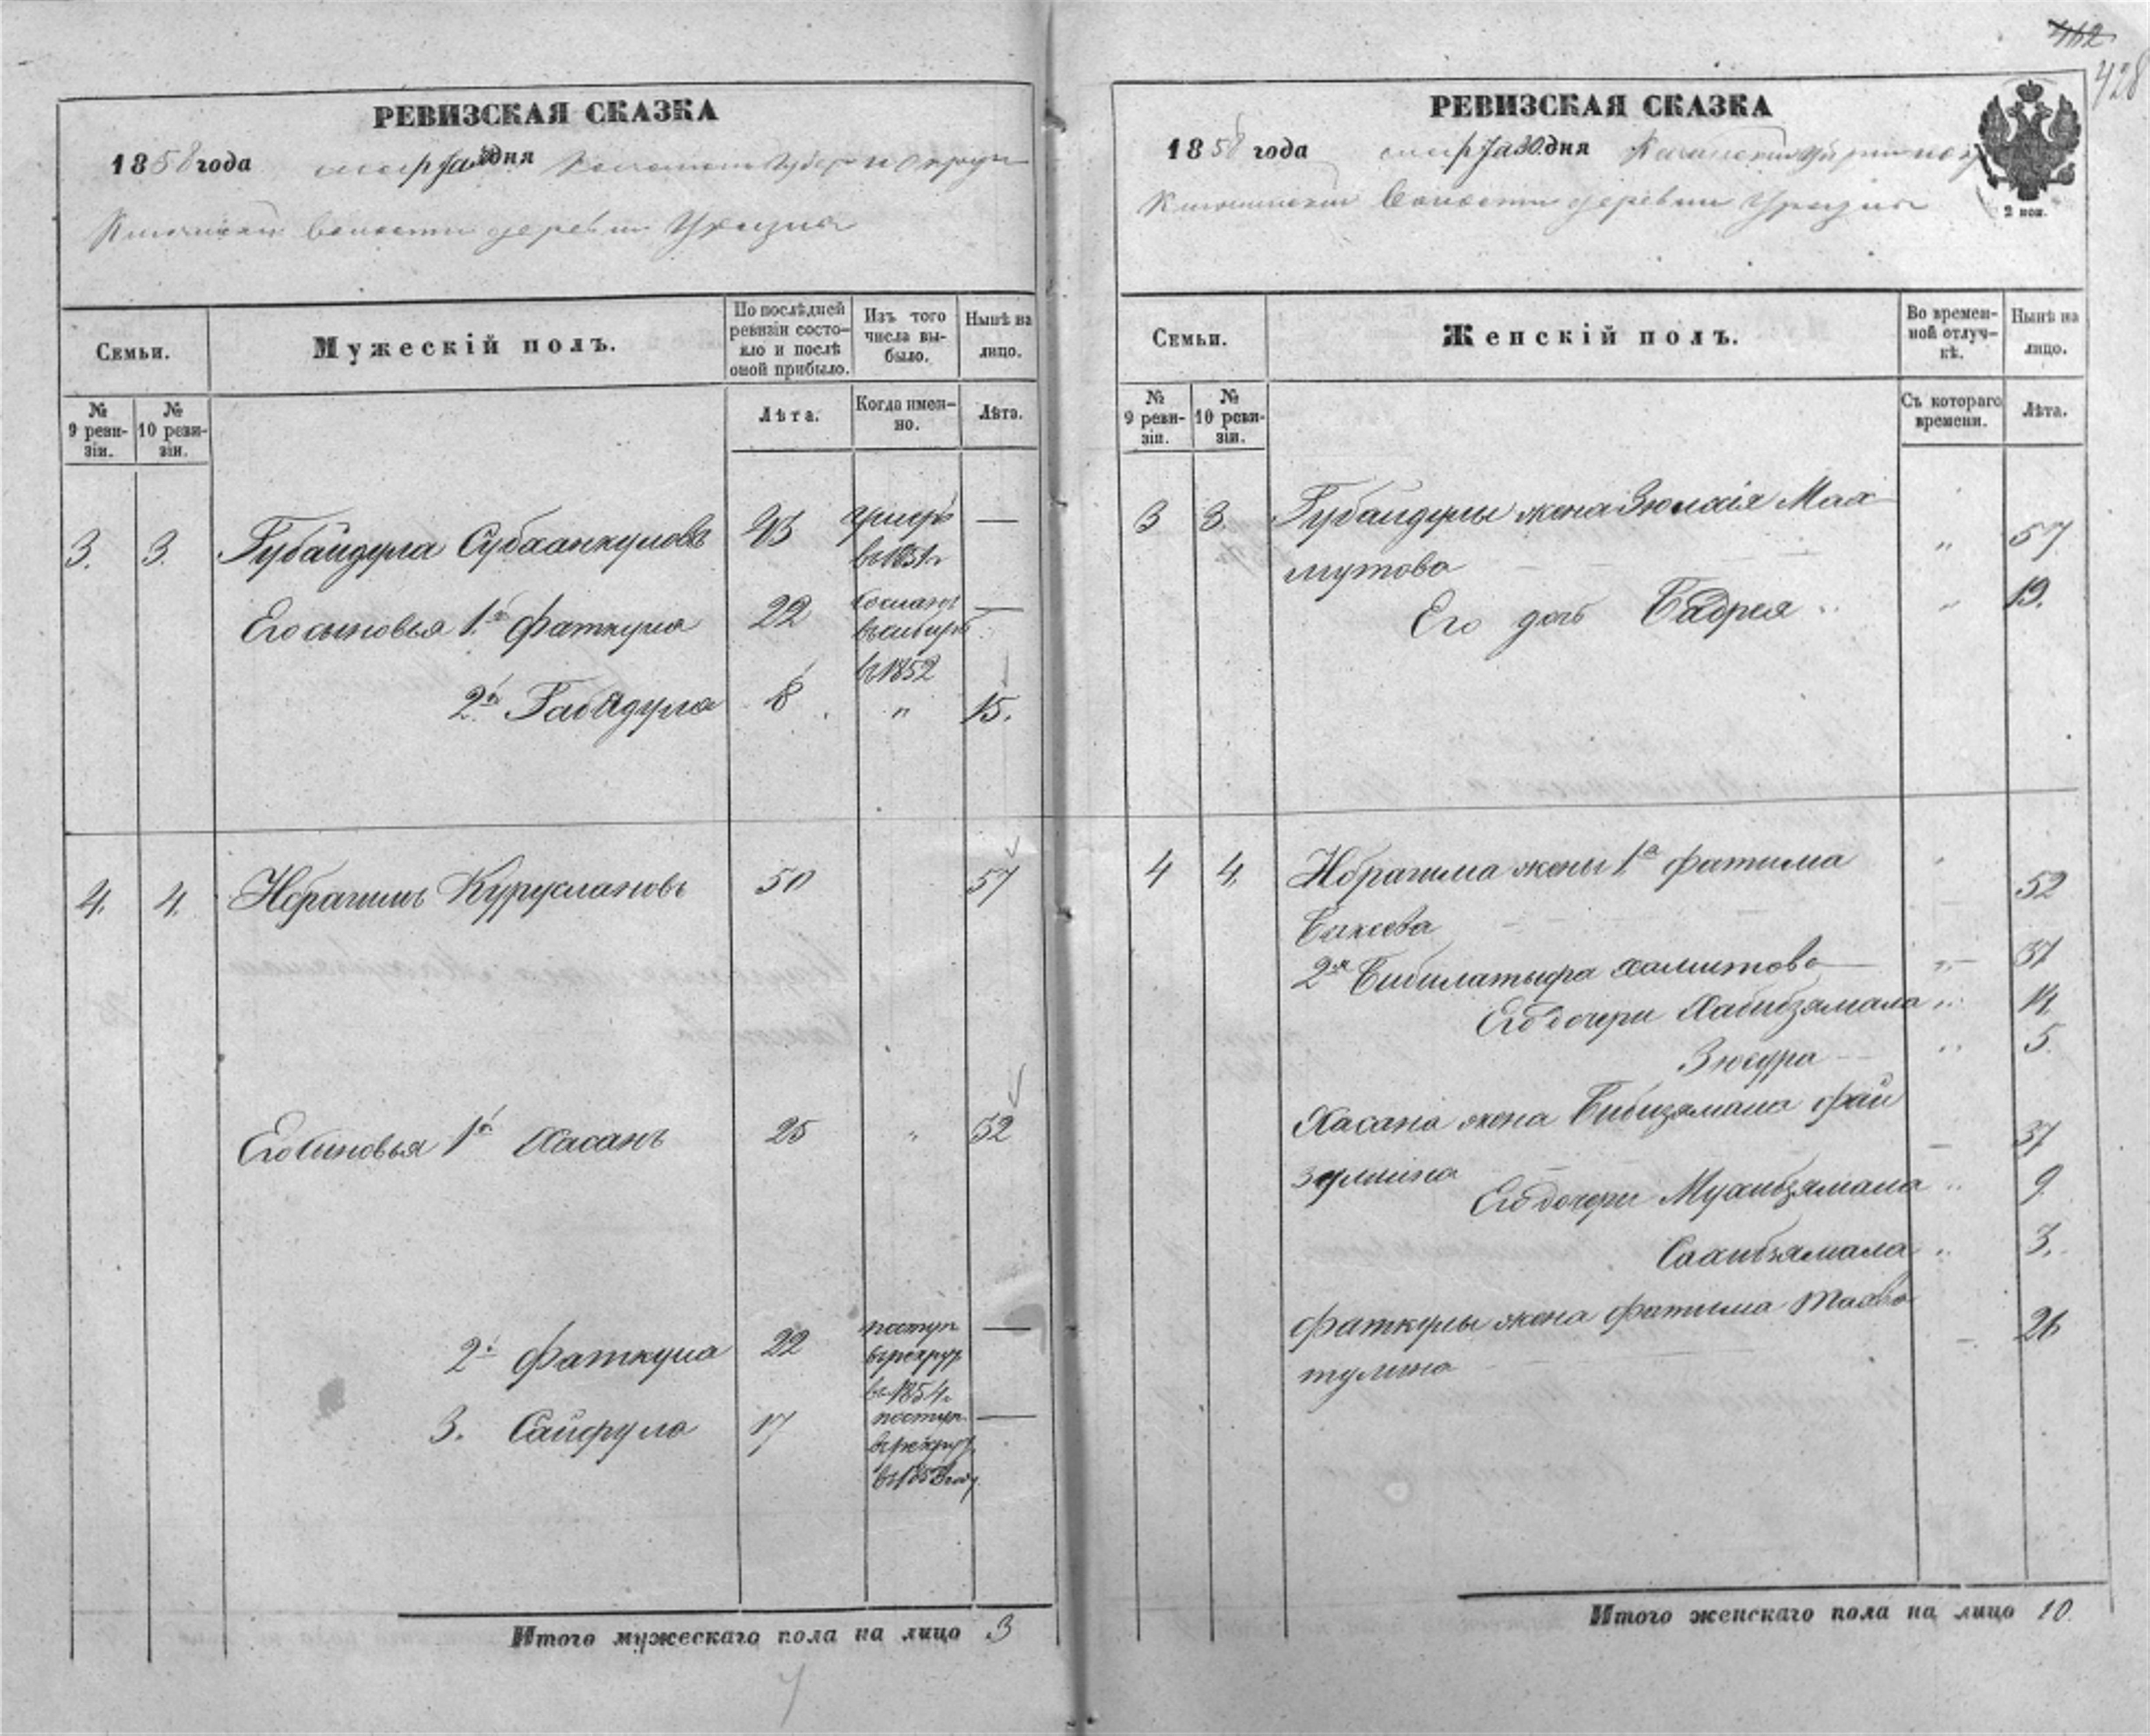 462
428
РЕВИЗСКАЯ СКАЗКА
1858 года марта 30 дня Казанской Губер и Округа
волости деревни
Семьи.
Мужескій полъ.
По послѣдней ревизіи состояло и послѣ оной прибыло.
Изъ того числа выбыло.
Нынѣ на лицо.
№ 9 ревизіи.
№ 10 ревизіи.
Лѣта.
Когда именно.
Лѣта.
3. 3. Губайдула 43 умеръ —
в 1851г
Его сыновья 1й Фаткула 22 сосланъ —
в сибирь
в 1852
2й Габядула 8 " 15.
4. 4. Ибрагимъ Куруслановъ 50 57
Его синовья 1й Хасанъ 25 " 32
2й Фаткула 22 поступ —
в рекрут
в 1854г
3. Сайфула 17 поступ. —
в рекрут
Итого мужескаго пола на лицо 3
РЕВИЗСКАЯ СКАЗКА
1858 года марта 30 дня Казанской
волости деревни
2 коп.
Семьи.
Женскій полъ.
Во временной отлучкѣ.
Нынѣ на лицо.
№ 9 ревизіи.
№ 10 ревизіи.
Съ котораго времени.
Лѣта.
3 3. Губайдулы жена Мах
мутова " 57
Его дочь Бадрея " 19.
4 4. Ибрагима жены 1я Фатима
Бикеева 52
2я Бибилатыфа Халитова " 37
Его дочери Хабибзямала " 14
Зюгура " 5
Хасана жена Бибизямала Фай
зулина 37
Его дочери Мухибзямала " 9
Сахибзямала " 3.
Фаткулы жена Фатима
тулина 26
Итого женскаго пола на лицо 10.